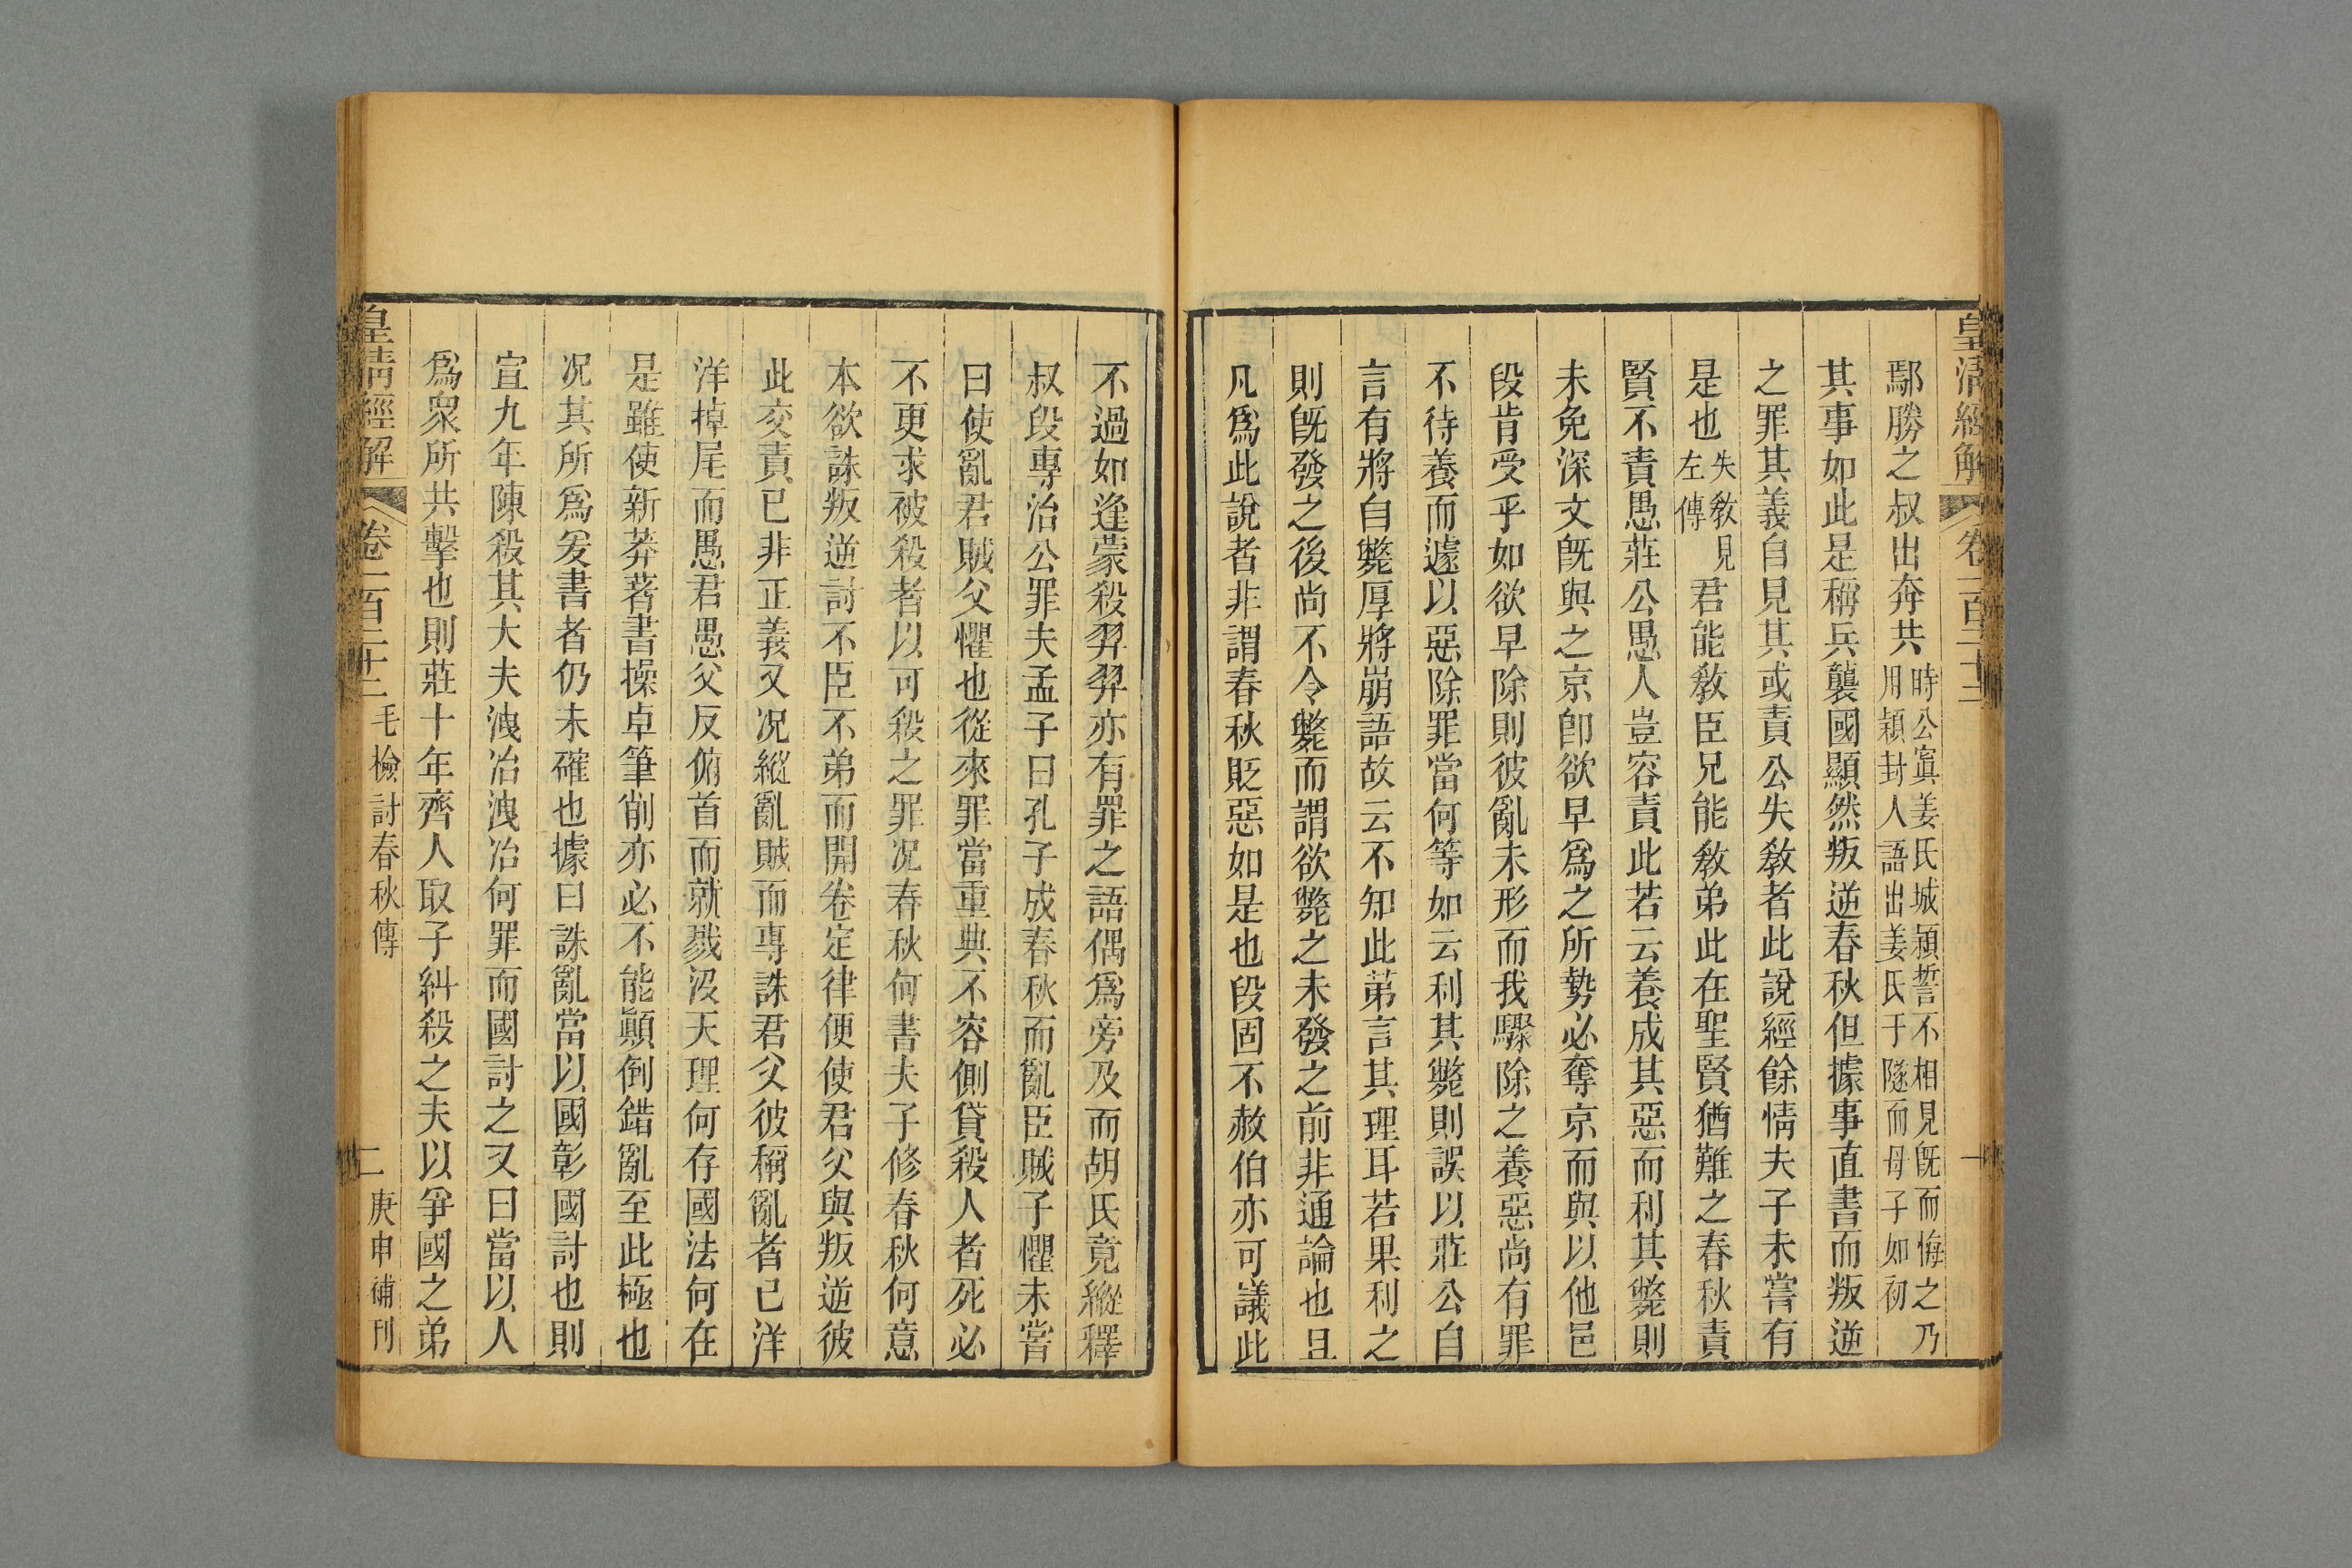 皇清經解 卷一百二十二 一
鄢勝之叔出奔共時公寘姜氏城潁誓不相見旣而悔之乃用潁封人語出姜氏于隧而母子如初
其事如此是稱兵襲國顯然叛逆春秋但據事直書而叛逆
之罪其義自見其或責公失敎者此說經餘情夫子未嘗有
是也失敎見左傳君能敎臣兄能敎弟此在聖賢猶難之春秋責
賢不責愚莊公愚人豈容責此若云養成其惡而利其斃則
未免深文旣與之京卽欲早爲之所勢必奪京而與以他邑
段肯受乎如欲早除則彼亂未形而我驟除之養惡尚有罪
不待養而遽以惡除罪當何等如云利其斃則誤以莊公自
言有將自斃厚將崩語故云不知此苐言其理耳若果利之
則旣發之後尚不令斃而謂欲斃之未發之前非通論也且
凡爲此說者非謂春秋貶惡如是也段固不赦伯亦可議此
不過如逢蒙殺羿羿亦有罪之語偶爲旁及而胡氏竟縱釋
叔段專治公罪夫孟子曰孔子成春秋而亂臣賊子懼未嘗
曰使亂君賊父懼也從來罪當重典不容側貸殺人者死必
不更求被殺者以可殺之罪况春秋何書夫子修春秋何意
本欲誅叛逆討不臣不弟而開卷定律便使君父與叛逆彼
此交責已非正義又况縱亂賊而專誅君父彼稱亂者已洋
洋掉尾而愚君愚父反俯首而就戮沒天理何存國法何在
是雖使新莽著書操卓筆削亦必不能顚倒錯亂至此極也
况其所爲爰書者仍未確也據曰誅亂當以國彰國討也則
宣九年陳殺其大夫洩冶洩冶何罪而國討之又曰當以人
爲衆所共擊也則莊十年齊人取子糾殺之夫以爭國之弟
皇清經解 卷一百二十二 毛檢討春秋傳 二 庚申補刊